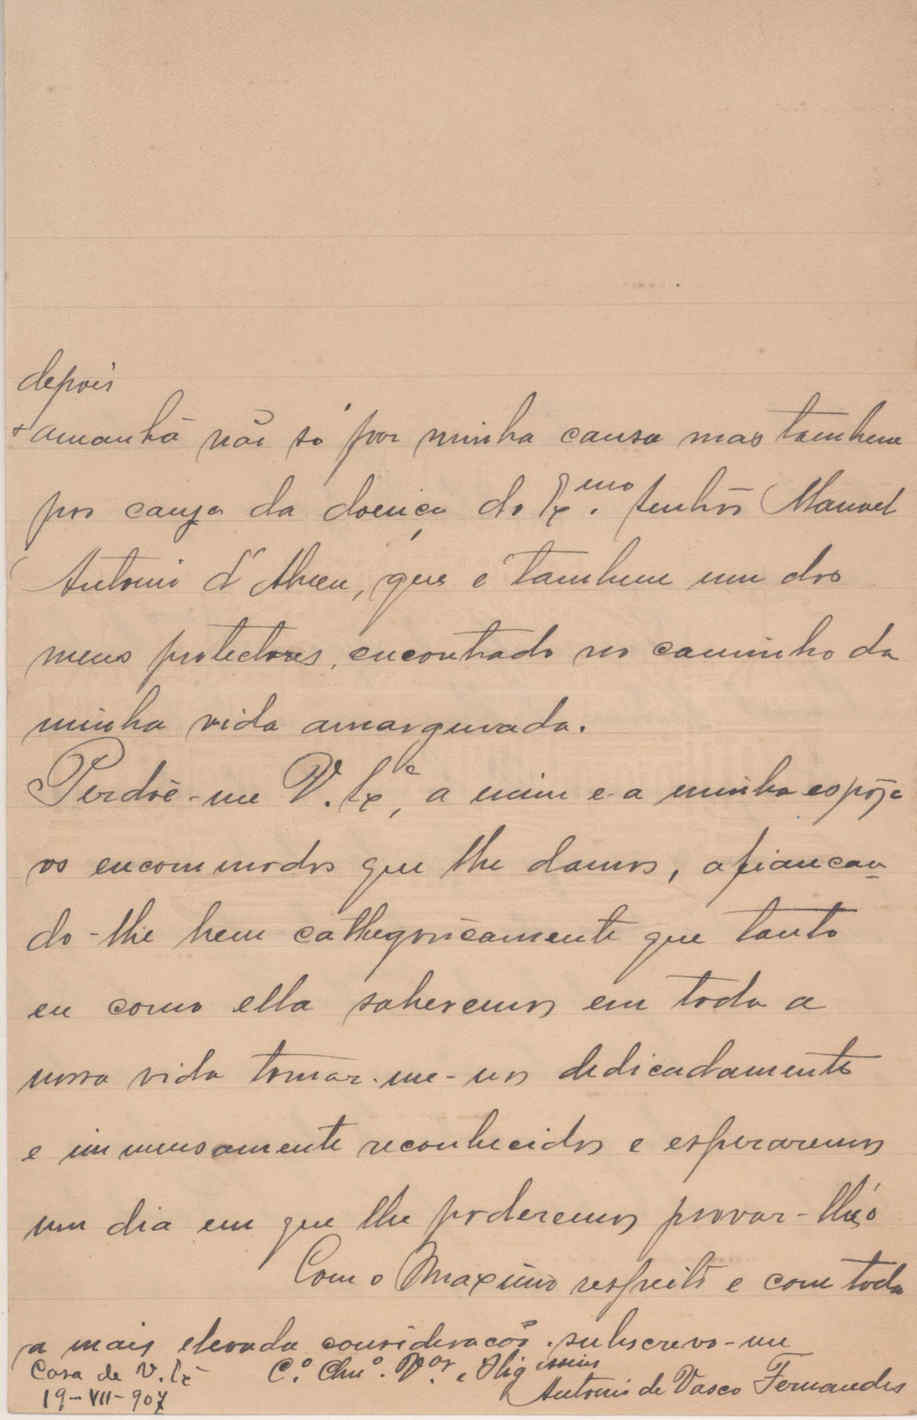 depois
+ amanhã não só por minha causa mas tambem
por cauza da doença do Ex.mo Senhôr Manoel
Antonio d'Abreu, que é tambem um dos
meus protectores, encontrado no caminho da
minha vida amargurada.
Perdôe-me V. Ex.ª, a mim e a minha espôza
os encommodos que lhe damos, afiancan-
do-lhe bem cathegoricamente que tanto
eu como ella saberemos em toda a
nossa vida tornar-me-nos dedicadamente
e immensamente reconhecidos e esperaremos
um dia em que lhe poderemos provar-lh'o
Com o Maximo respeito e com toda
a mais elevada consideracão subscrevo-me
Casa de V. Ex.ª C.º Am.º V.or e Obrig.issimo
19-VII-907 Antonio de Vasco Fernandes